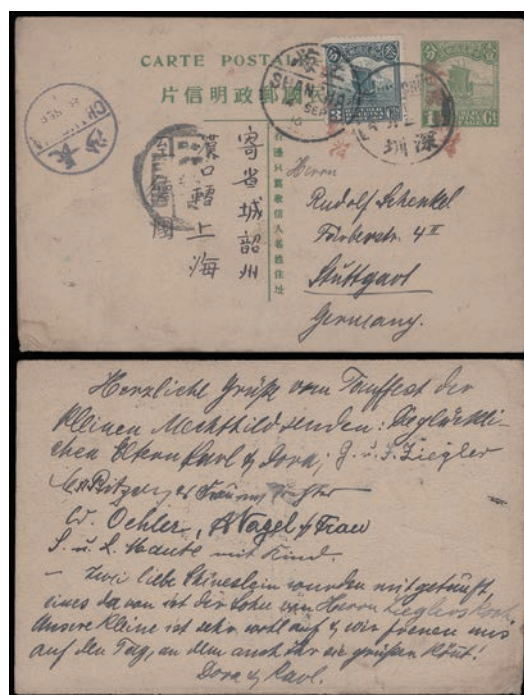 CARTE POSTALE
片信明政郵國民華中
SHANGHAI
SEP
長沙
深圳
寄省城韶州
漢口轉上海
國
Herrn
Rudolf Schenkel
Stuttgart
Germany.
Herzliche Grüße vom Tauffest der
kleinen Mechthild senden: die glückli-
chen Eltern Karl & Dora; G. u. J. Ziegler
W. Oehler, A Nagel & Frau
S. u. L. Maute mit Kind.
— Zwei liebe Chineslein wurden mitgetauft,
eines davon ist der Sohn von Herrn Zieglers Koch.
Unsere Kleine ist sehr wohl auf & wir freuen uns
auf den Tag, an dem auch
Dora & Karl.